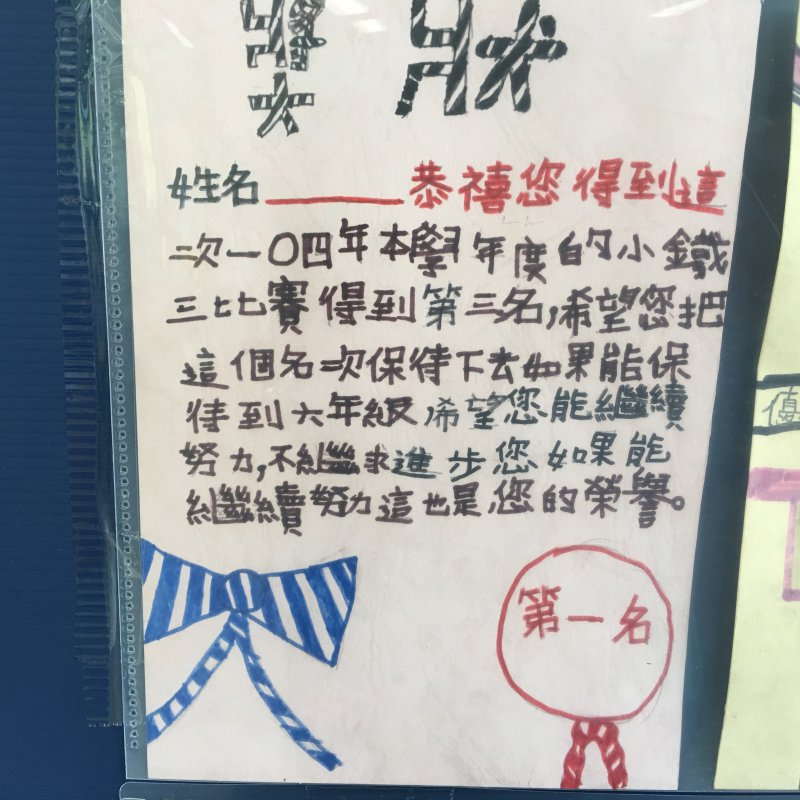 獎狀
姓名______恭禧您得到這
二次一〇四年本學年度的小鐵
三比賽得到第三名,希望您把
這個名次保待下去如果能保
待到六年級希望您能繼續
努力,不繼求進步您如果能
繼續努力這也是您的榮譽。
第一名